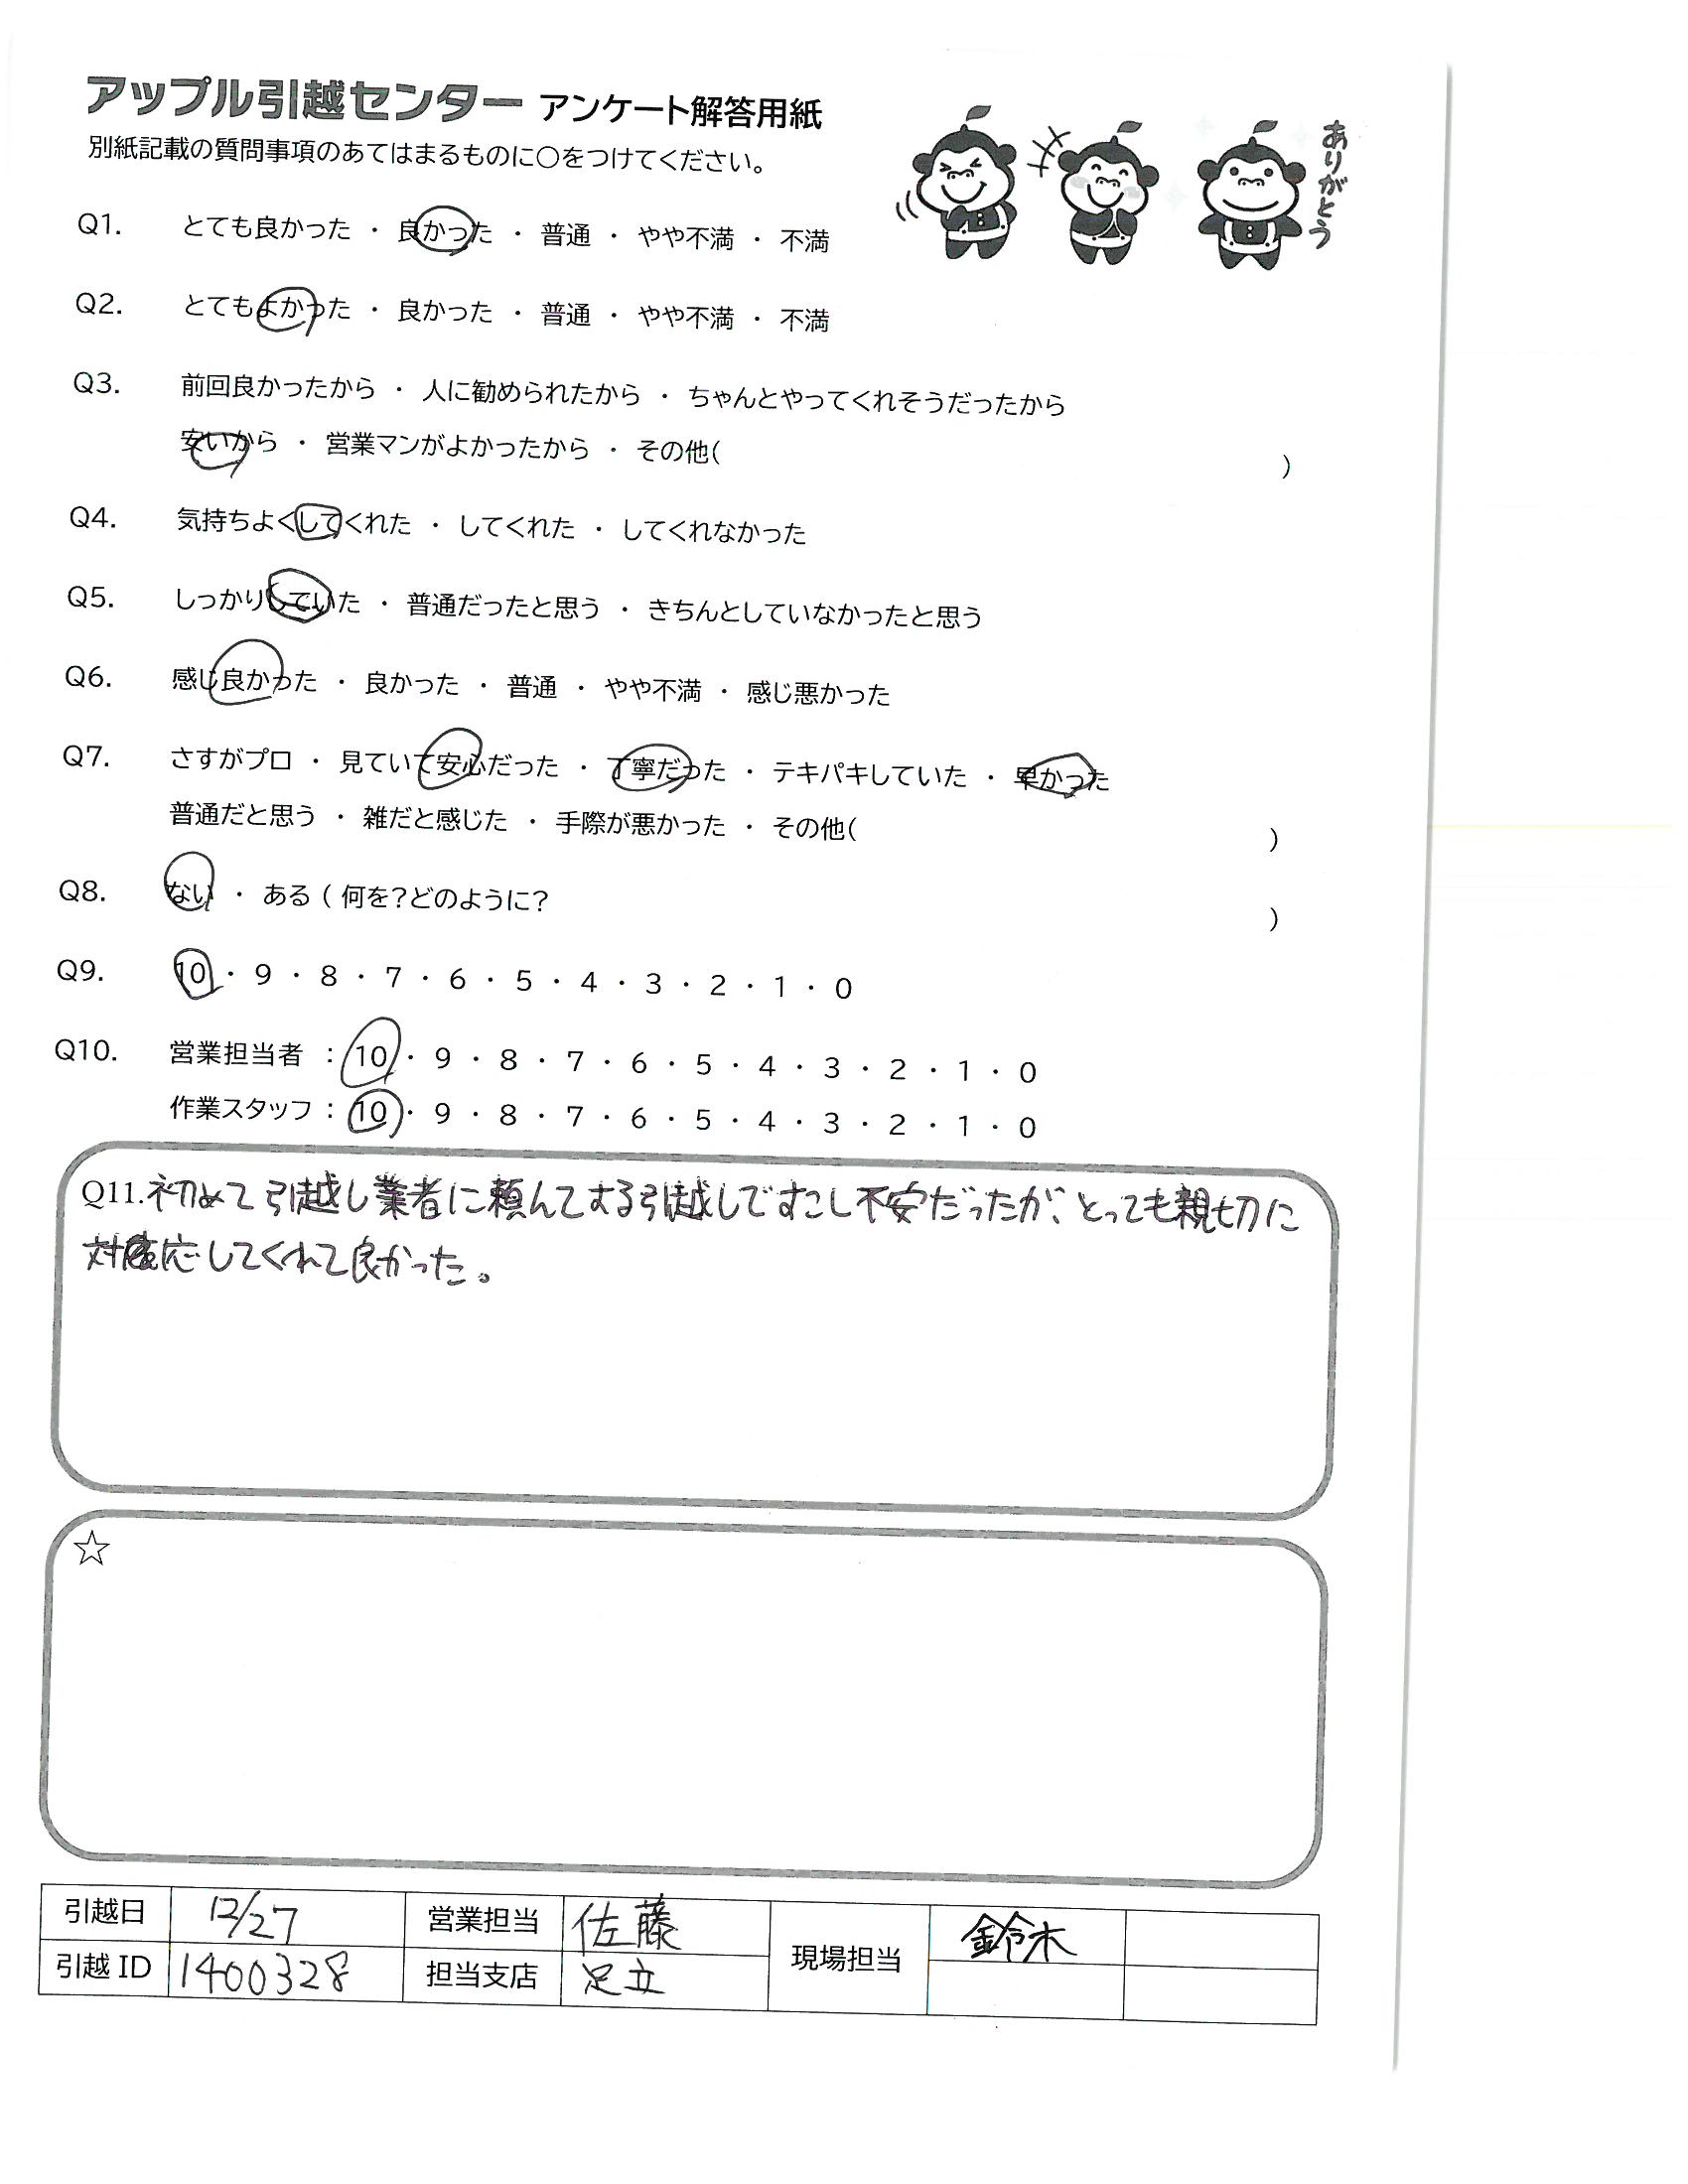 アップル引越センター アンケート解答用紙
別紙記載の質問事項のあてはまるものに〇をつけてください。
ありがとう
Q1. とても良かった ・ 良かった ・ 普通 ・ やや不満 ・ 不満
Q2. とてもよかった ・ 良かった ・ 普通 ・ やや不満 ・ 不満
Q3. 前回良かったから ・ 人に勧められたから ・ ちゃんとやってくれそうだったから
安いから ・ 営業マンがよかったから ・ その他( )
Q4. 気持ちよくしてくれた ・ してくれた ・ してくれなかった
Q5. しっかりしていた ・ 普通だったと思う ・ きちんとしていなかったと思う
Q6. 感じ良かった ・ 良かった ・ 普通 ・ やや不満 ・ 感じ悪かった
Q7. さすがプロ ・ 見ていて安心だった ・ 丁寧だった ・ テキパキしていた ・ 早かった
普通だと思う ・ 雑だと感じた ・ 手際が悪かった ・ その他( )
Q8. ない ・ ある ( 何を?どのように? )
Q9. 10 ・ 9 ・ 8 ・ 7 ・ 6 ・ 5 ・ 4 ・ 3 ・ 2 ・ 1 ・ 0
Q10. 営業担当者 : 10 ・ 9 ・ 8 ・ 7 ・ 6 ・ 5 ・ 4 ・ 3 ・ 2 ・ 1 ・ 0
作業スタッフ : 10 ・ 9 ・ 8 ・ 7 ・ 6 ・ 5 ・ 4 ・ 3 ・ 2 ・ 1 ・ 0
Q11. 初めて引越し業者に頼んでする引越しですこし不安だったが、とっても親切に
対応してくれて良かった。
☆
引越日 12/27 営業担当 佐藤 現場担当 鈴木
引越 ID 1400328 担当支店 足立